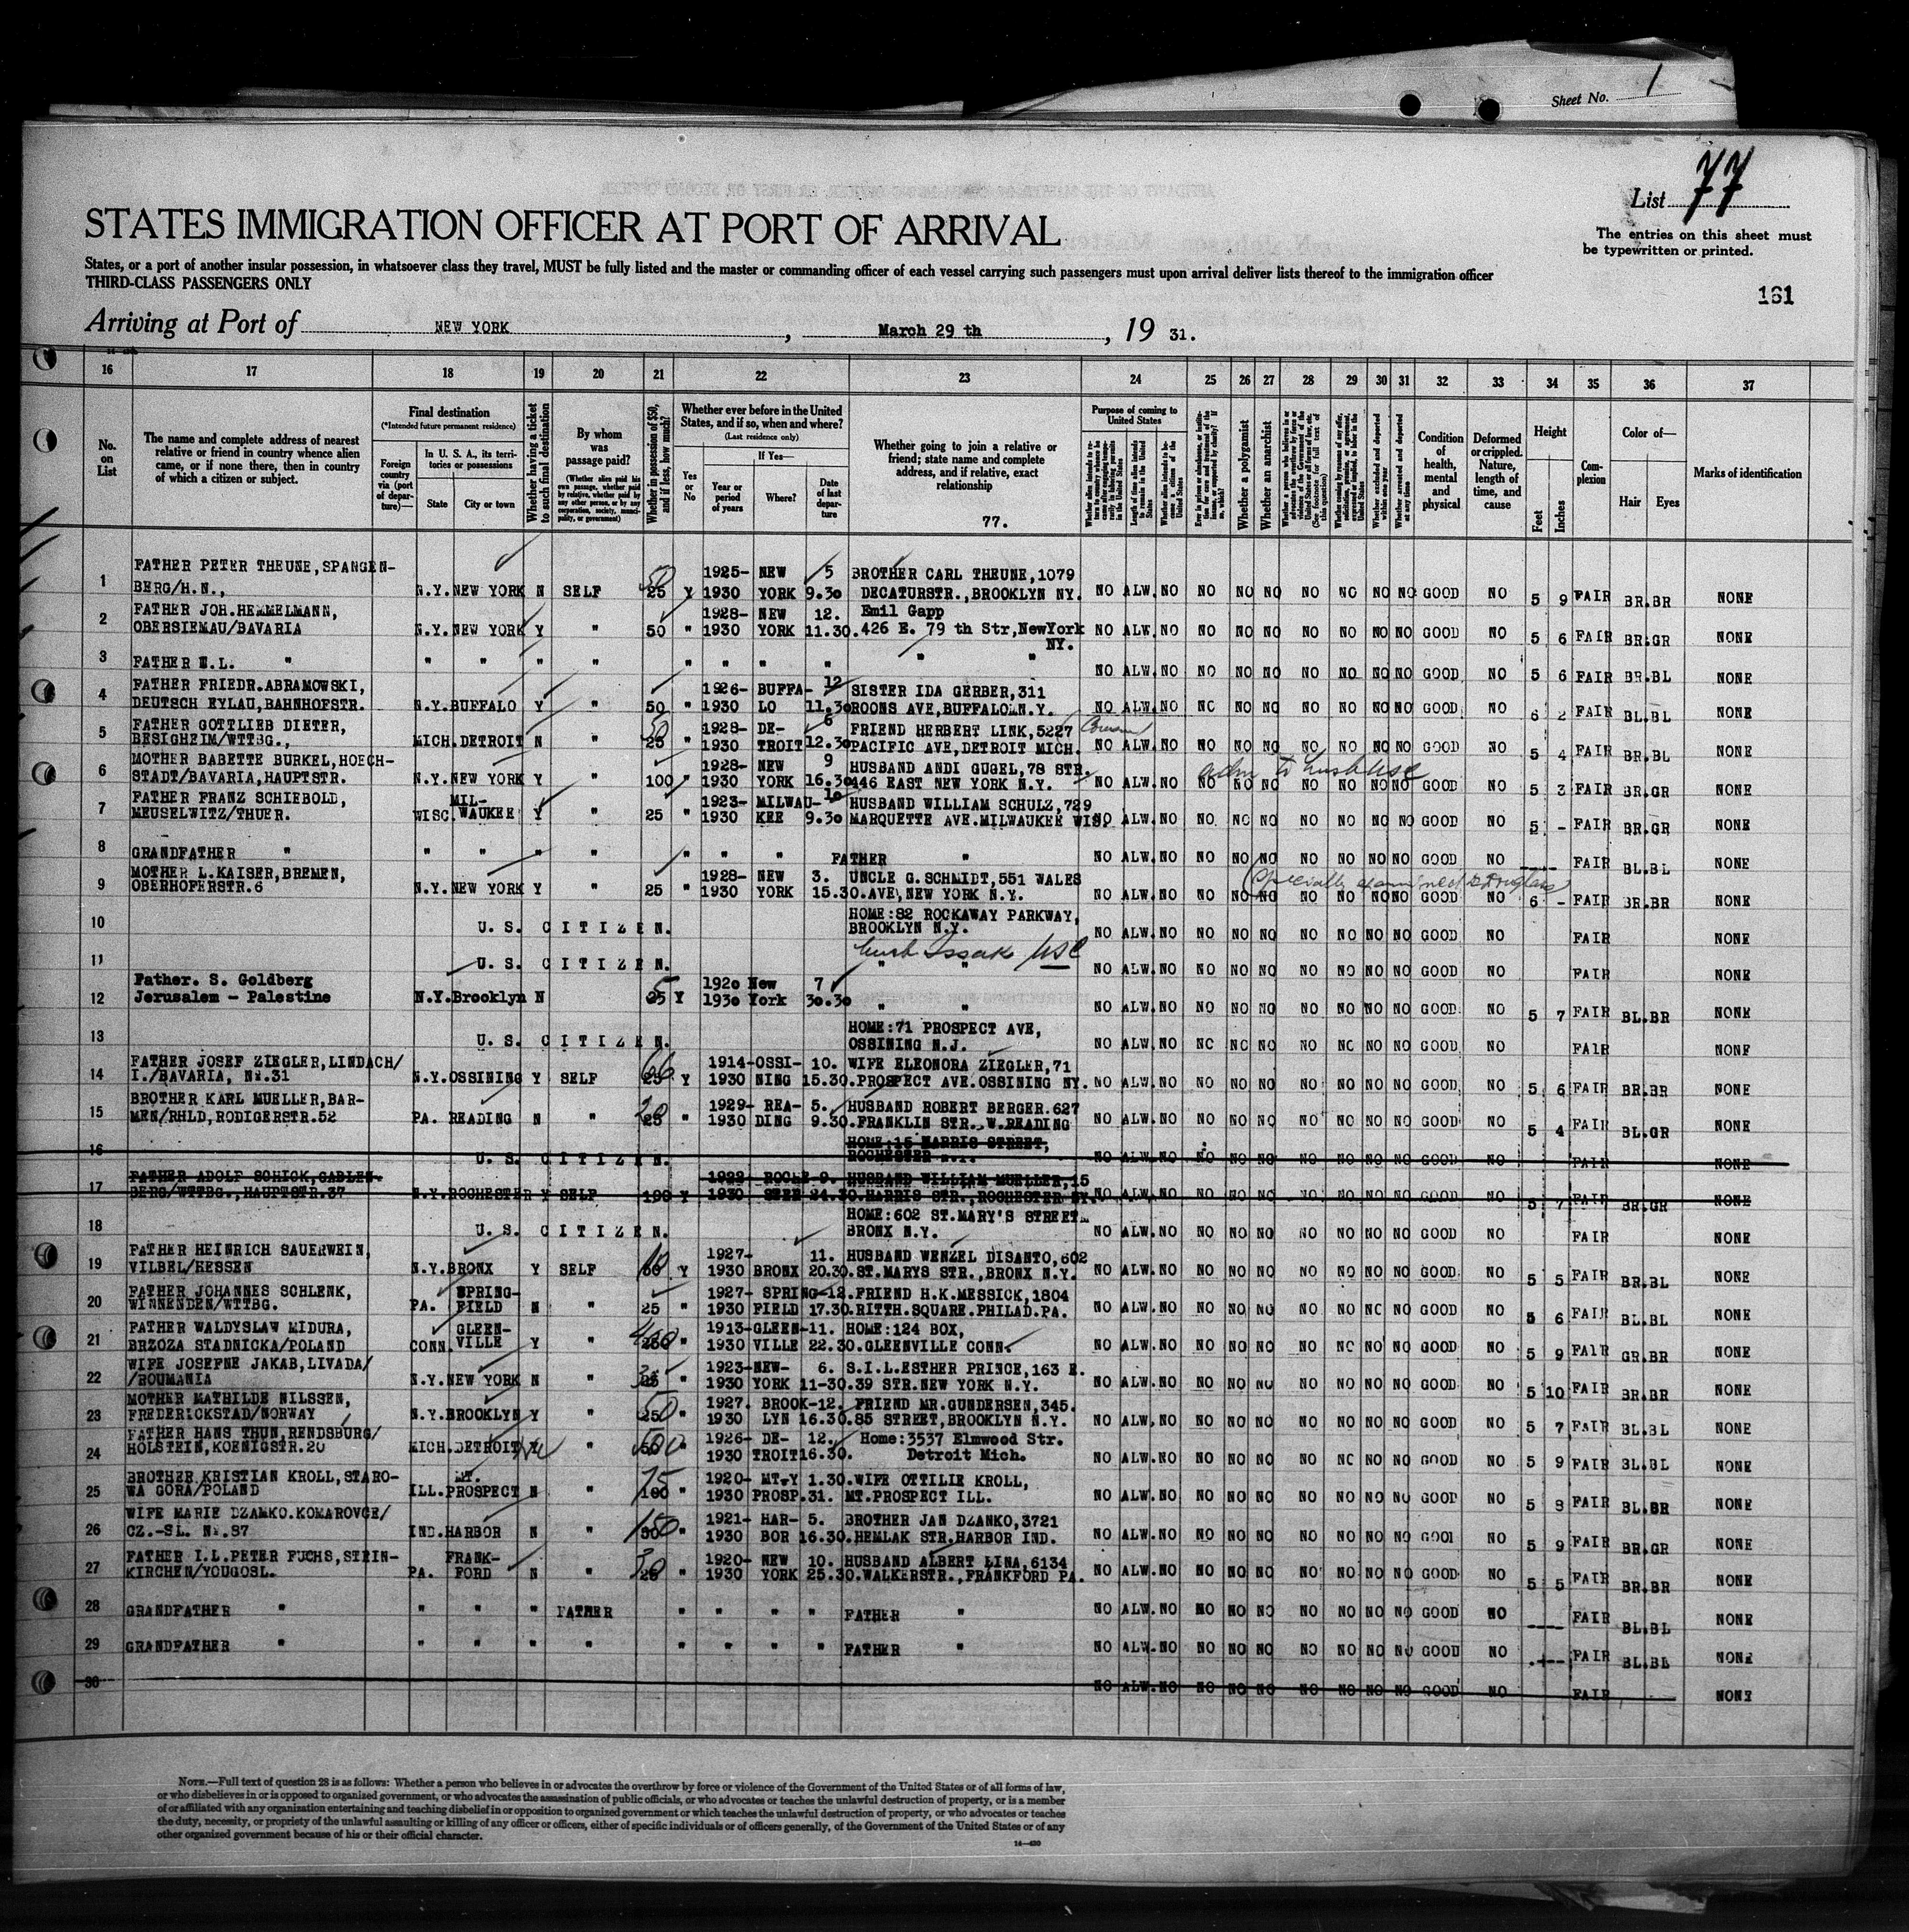 Sheet No. 1
List 77
STATES IMMIGRATION OFFICER AT PORT OF ARRIVAL
The entries on this sheet must
be typewritten or printed.
States, or a port of another insular possession, in whatsoever class they travel, MUST be fully listed and the master or commanding officer of each vessel carrying such passengers must upon arrival deliver lists thereof to the immigration officer
THIRD-CLASS PASSENGERS ONLY
161
Arriving at Port of NEW YORK, March 29 th, 19 31.
16 17 18 19 20 21 22 23 24 25 26 27 28 29 30 31 32 33 34 35 36 37
No. on List
The name and complete address of nearest relative or friend in country whence alien came, or if none there, then in country of which a citizen or subject.
Final destination
(*Intended future permanent residence)
Foreign country via (port of departure)—
In U. S. A., its territories or possessions
State
City or town
Whether having a ticket to such final destination
By whom was passage paid?
(Whether alien paid his own passage, whether paid by relative, whether paid by any other person, or by any corporation, society, municipality, or government)
Whether in possession of $50, and if less, how much?
Whether ever before in the United States, and if so, when and where?
(Last residence only)
Yes or No
If Yes—
Year or period of years
Where?
Date of last departure
Whether going to join a relative or friend; state name and complete address, and if relative, exact relationship
77.
Purpose of coming to United States
Length of time alien intends to remain in the United States
Whether alien intends to become a citizen of the United States
Whether a polygamist
Whether an anarchist
Condition of health, mental and physical
Deformed or crippled. Nature, length of time, and cause
Height
Feet
Inches
Complexion
Color of—
Hair
Eyes
Marks of identification
1 FATHER PETER THEUNE, SPANGEN- 1925- NEW 5 BROTHER CARL THEUNE, 1079
BERG/H.N., N.Y. NEW YORK N SELF 50 25 Y 1930 YORK 9.30 DECATURSTR., BROOKLYN NY. NO ALW. NO NO NO NO NO NO NO NO GOOD NO 5 9 FAIR BR.BR NONE
2 FATHER JOH.HEMMELMANN, 1928- NEW 12. Emil Gapp
OBERSIEMAU/BAVARIA N.Y. NEW YORK Y " 50 " 1930 YORK 11.30. 426 E. 79 th Str, NewYork NY. NO ALW. NO NO NO NO NO NO NO NO GOOD NO 5 6 FAIR BR.GR NONE
3 FATHER " " " " " " " " " " " NO ALW. NO NO NO NO NO NO NO NO GOOD NO 5 6 FAIR BR.BL NONE
4 FATHER FRIEDR.ABRAMOWSKI, 1926- BUFFA- 12 SISTER IDA GERBER, 311
DEUTSCH EYLAU, BAHNHOFSTR. N.Y. BUFFALO Y " 50 " 1930 LO 11.30 ROONS AVE, BUFFALO N.Y. NO ALW. NO NO NO NO NO NO NO NO GOOD NO 6 2 FAIR BL.BL NONE
5 FATHER GOTTLIEB DIETER, 1928- DE- 6 FRIEND HERBERT LINK, 5227
BESIGHEIM/WTTBG., MICH. DETROIT N " 50 25 " 1930 TROIT 12.30 PACIFIC AVE, DETROIT MICH. NO ALW. NO NO NO NO NO NO NO NO GOOD NO 5 4 FAIR BR.BL NONE
6 MOTHER BABETTE BURKEL, HOECH- 1928- NEW 9 HUSBAND ANDI GUGEL, 78 STR. adm to husb USC
STADT/BAVARIA, HAUPTSTR. N.Y. NEW YORK Y " 100 " 1930 YORK 16.30 446 EAST NEW YORK N.Y. NO ALW. NO NO NO NO NO NO NO NO GOOD NO 5 3 FAIR BR.GR NONE
7 FATHER FRANZ SCHIEBOLD, MIL- 1923- MILWAU- 10 HUSBAND WILLIAM SCHULZ, 729
MEUSELWITZ/THUER. WISC. WAUKEE Y " 25 " 1930 KEE 9.30 MARQUETTE AVE. MILWAUKEE WIS. NO ALW. NO NO NO NO NO NO NO NO GOOD NO 5 - FAIR BR.GR NONE
8 GRANDFATHER " " " " " " " " FATHER " NO ALW. NO NO NO NO NO NO NO NO GOOD NO ---- FAIR BL.BL NONE
9 MOTHER L.KAISER, BREMEN, 1928- NEW 3. UNCLE G.SCHMIDT, 551 WALES Specially examined
OBERHOFERSTR.6 N.Y. NEW YORK Y " 25 " 1930 YORK 15.30. AVE, NEW YORK N.Y. NO ALW. NO NO NO NO NO NO NO NO GOOD NO 6 - FAIR BR.BR NONE
10 U. S. CITIZEN. HOME: 82 ROCKAWAY PARKWAY,
BROOKLYN N.Y. NO ALW. NO NO NO NO NO NO NO NO GOOD NO FAIR NONE
husb Issak USC
11 U. S. CITIZEN. " " NO ALW. NO NO NO NO NO NO NO NO GOOD NO FAIR NONE
12 Father. S. Goldberg 1920 New 7
Jerusalem - Palestine N.Y. Brooklyn N 5 25 Y 1930 York 30.30 " " NO ALW. NO NO NO NO NO NO NO NO GOOD NO 5 7 FAIR BL.BR NONE
13 U. S. CITIZEN. HOME: 71 PROSPECT AVE,
OSSINING N.J. NO ALW. NO NO NO NO NO NO NO NO GOOD NO FAIR NONE
14 FATHER JOSEF ZIEGLER, LINDACH/ 1914- OSSI- 10. WIFE ELEONORA ZIEGLER, 71
I./BAVARIA, Nr.31 N.Y. OSSINING Y SELF 66 25 Y 1930 NING 15.30. PROSPECT AVE. OSSINING NY. NO ALW. NO NO NO NO NO NO NO NO GOOD NO 5 6 FAIR BR.BR NONE
15 BROTHER KARL MUELLER, BAR- 1929- REA- 5. HUSBAND ROBERT BERGER. 627
MEN/RHLD, RODIGERSTR.52 PA. READING N " 20 25 " 1930 DING 9.30. FRANKLIN STR. W. READING NO ALW. NO NO NO NO NO NO NO NO GOOD NO 5 4 FAIR BL.GR NONE
16 U. S. CITIZEN. HOME: 15 HARRIS STREET,
ROCHESTER N.Y. NO ALW. NO NO NO NO NO NO NO NO GOOD NO FAIR NONE
17 FATHER ADOLF SCHICK, GABLEN- 1922- ROCHE- 9. HUSBAND WILLIAM MUELLER, 15
BERG/WTTBG., HAUPTSTR.37 N.Y. ROCHESTER Y SELF 100 Y 1930 STER 24.30. HARRIS STR., ROCHESTER NY. NO ALW. NO NO NO NO NO NO NO NO GOOD NO 5 7 FAIR BR.GR NONE
18 U. S. CITIZEN. HOME: 602 ST.MARY'S STREET
BRONX N.Y. NO ALW. NO NO NO NO NO NO NO NO GOOD NO FAIR NONE
19 FATHER HEINRICH SAUERWEIN, 1927- 11. HUSBAND WENZEL DISANTO, 602
VILBEL/HESSEN N.Y. BRONX Y SELF 10 Y 1930 BRONX 20.30. ST.MARYS STR., BRONX N.Y. NO ALW. NO NO NO NO NO NO NO NO GOOD NO 5 5 FAIR BR.BL NONE
20 FATHER JOHANNES SCHLENK, SPRING- 1927- SPRING- 12. FRIEND H.K.MESSICK, 1804
WINNENDEN/WTTBG. PA. FIELD N " 25 " 1930 FIELD 17.30. RITTH.SQUARE. PHILAD.PA. NO ALW. NO NO NO NO NO NO NO NO GOOD NO 5 6 FAIR BL.BL NONE
21 FATHER WALDYSLAW MIDURA, GLEEN- 1913- GLEEN- 11. HOME: 124 BOX,
BRZOZA STADNICKA/POLAND CONN. VILLE Y " 400 " 1930 VILLE 22.30. GLEENVILLE CONN. NO ALW. NO NO NO NO NO NO NO NO GOOD NO 5 9 FAIR GR.BR NONE
22 WIFE JOSEFNE JAKAB, LIVADA/ 1923- NEW- 6. S.I.L.ESTHER PRINCE, 163 E.
/ROUMANIA N.Y. NEW YORK N " " 1930 YORK 11-30. 39 STR. NEW YORK N.Y. NO ALW. NO NO NO NO NO NO NO NO GOOD NO 5 10 FAIR BR.BR NONE
23 MOTHER MATHILDE NILSSEN, 1927. BROOK- 12. FRIEND MR.GUNDERSEN, 345.
FREDERICKSTAD/NORWAY N.Y. BROOKLYN Y " 50 " 1930 LYN 16.30. 85 STREET, BROOKLYN N.Y. NO ALW. NO NO NO NO NO NO NO NO GOOD NO 5 7 FAIR BL.BL NONE
24 FATHER HANS THUN, RENDSBURG/ 1926- DE- 12. Home: 3537 Elmwood Str.
HOLSTEIN, KOENIGSTR.20 MICH. DETROIT " " 1930 TROIT 16.30. Detroit Mich. NO ALW. NO NO NO NO NO NO NO NO GOOD NO 5 9 FAIR BL.BL NONE
25 BROTHER KRISTIAN KROLL, STARO- MT. 75 1920- MT.Y 1.30. WIFE OTTILIE KROLL,
WA GORA/POLAND ILL. PROSPECT N " 100 " 1930 PROSP. 31. MT.PROSPECT ILL. NO ALW. NO NO NO NO NO NO NO NO GOOD NO 5 8 FAIR BL.BR NONE
26 WIFE MARIE DZAMKO. KOMAROVCE/ 1921- HAR- 5. BROTHER JAN DZANKO, 3721
CZ.-SL. Nr.87 IND. HARBOR N " 150 " 1930 BOR 16.30. HEMLAK STR. HARBOR IND. NO ALW. NO NO NO NO NO NO NO NO GOOD NO 5 9 FAIR BR.GR NONE
27 FATHER I.L.PETER FUCHS, STEIN- FRANK- 1920- NEW 10. HUSBAND ALBERT LINA, 6134
KIRCHEN/YOUGOSL. PA. FORD N " 30 25 " 1930 YORK 25.30. WALKERSTR., FRANKFORD PA. NO ALW. NO NO NO NO NO NO NO NO GOOD NO 5 5 FAIR BR.BR NONE
28 GRANDFATHER " " " " FATHER " " " " FATHER " NO ALW. NO NO NO NO NO NO NO NO GOOD NO ---- FAIR BL.BL NONE
29 GRANDFATHER " " " " " " " " " FATHER " NO ALW. NO NO NO NO NO NO NO NO GOOD NO ---- FAIR BL.BL NONE
30 NO ALW. NO NO NO NO NO NO NO NO GOOD NO FAIR NONE
NOTE.—Full text of question 28 is as follows: Whether a person who believes in or advocates the overthrow by force or violence of the Government of the United States or of all forms of law,
or who disbelieves in or is opposed to organized government, or who advocates the assassination of public officials, or who advocates or teaches the unlawful destruction of property, or is a member
of or affiliated with any organization entertaining and teaching disbelief in or opposition to organized government or which teaches the unlawful destruction of property, or who advocates or teaches
the duty, necessity, or propriety of the unlawful assaulting or killing of any officer or officers, either of specific individuals or of officers generally, of the Government of the United States or of any
other organized government because of his or their official character.
14—490